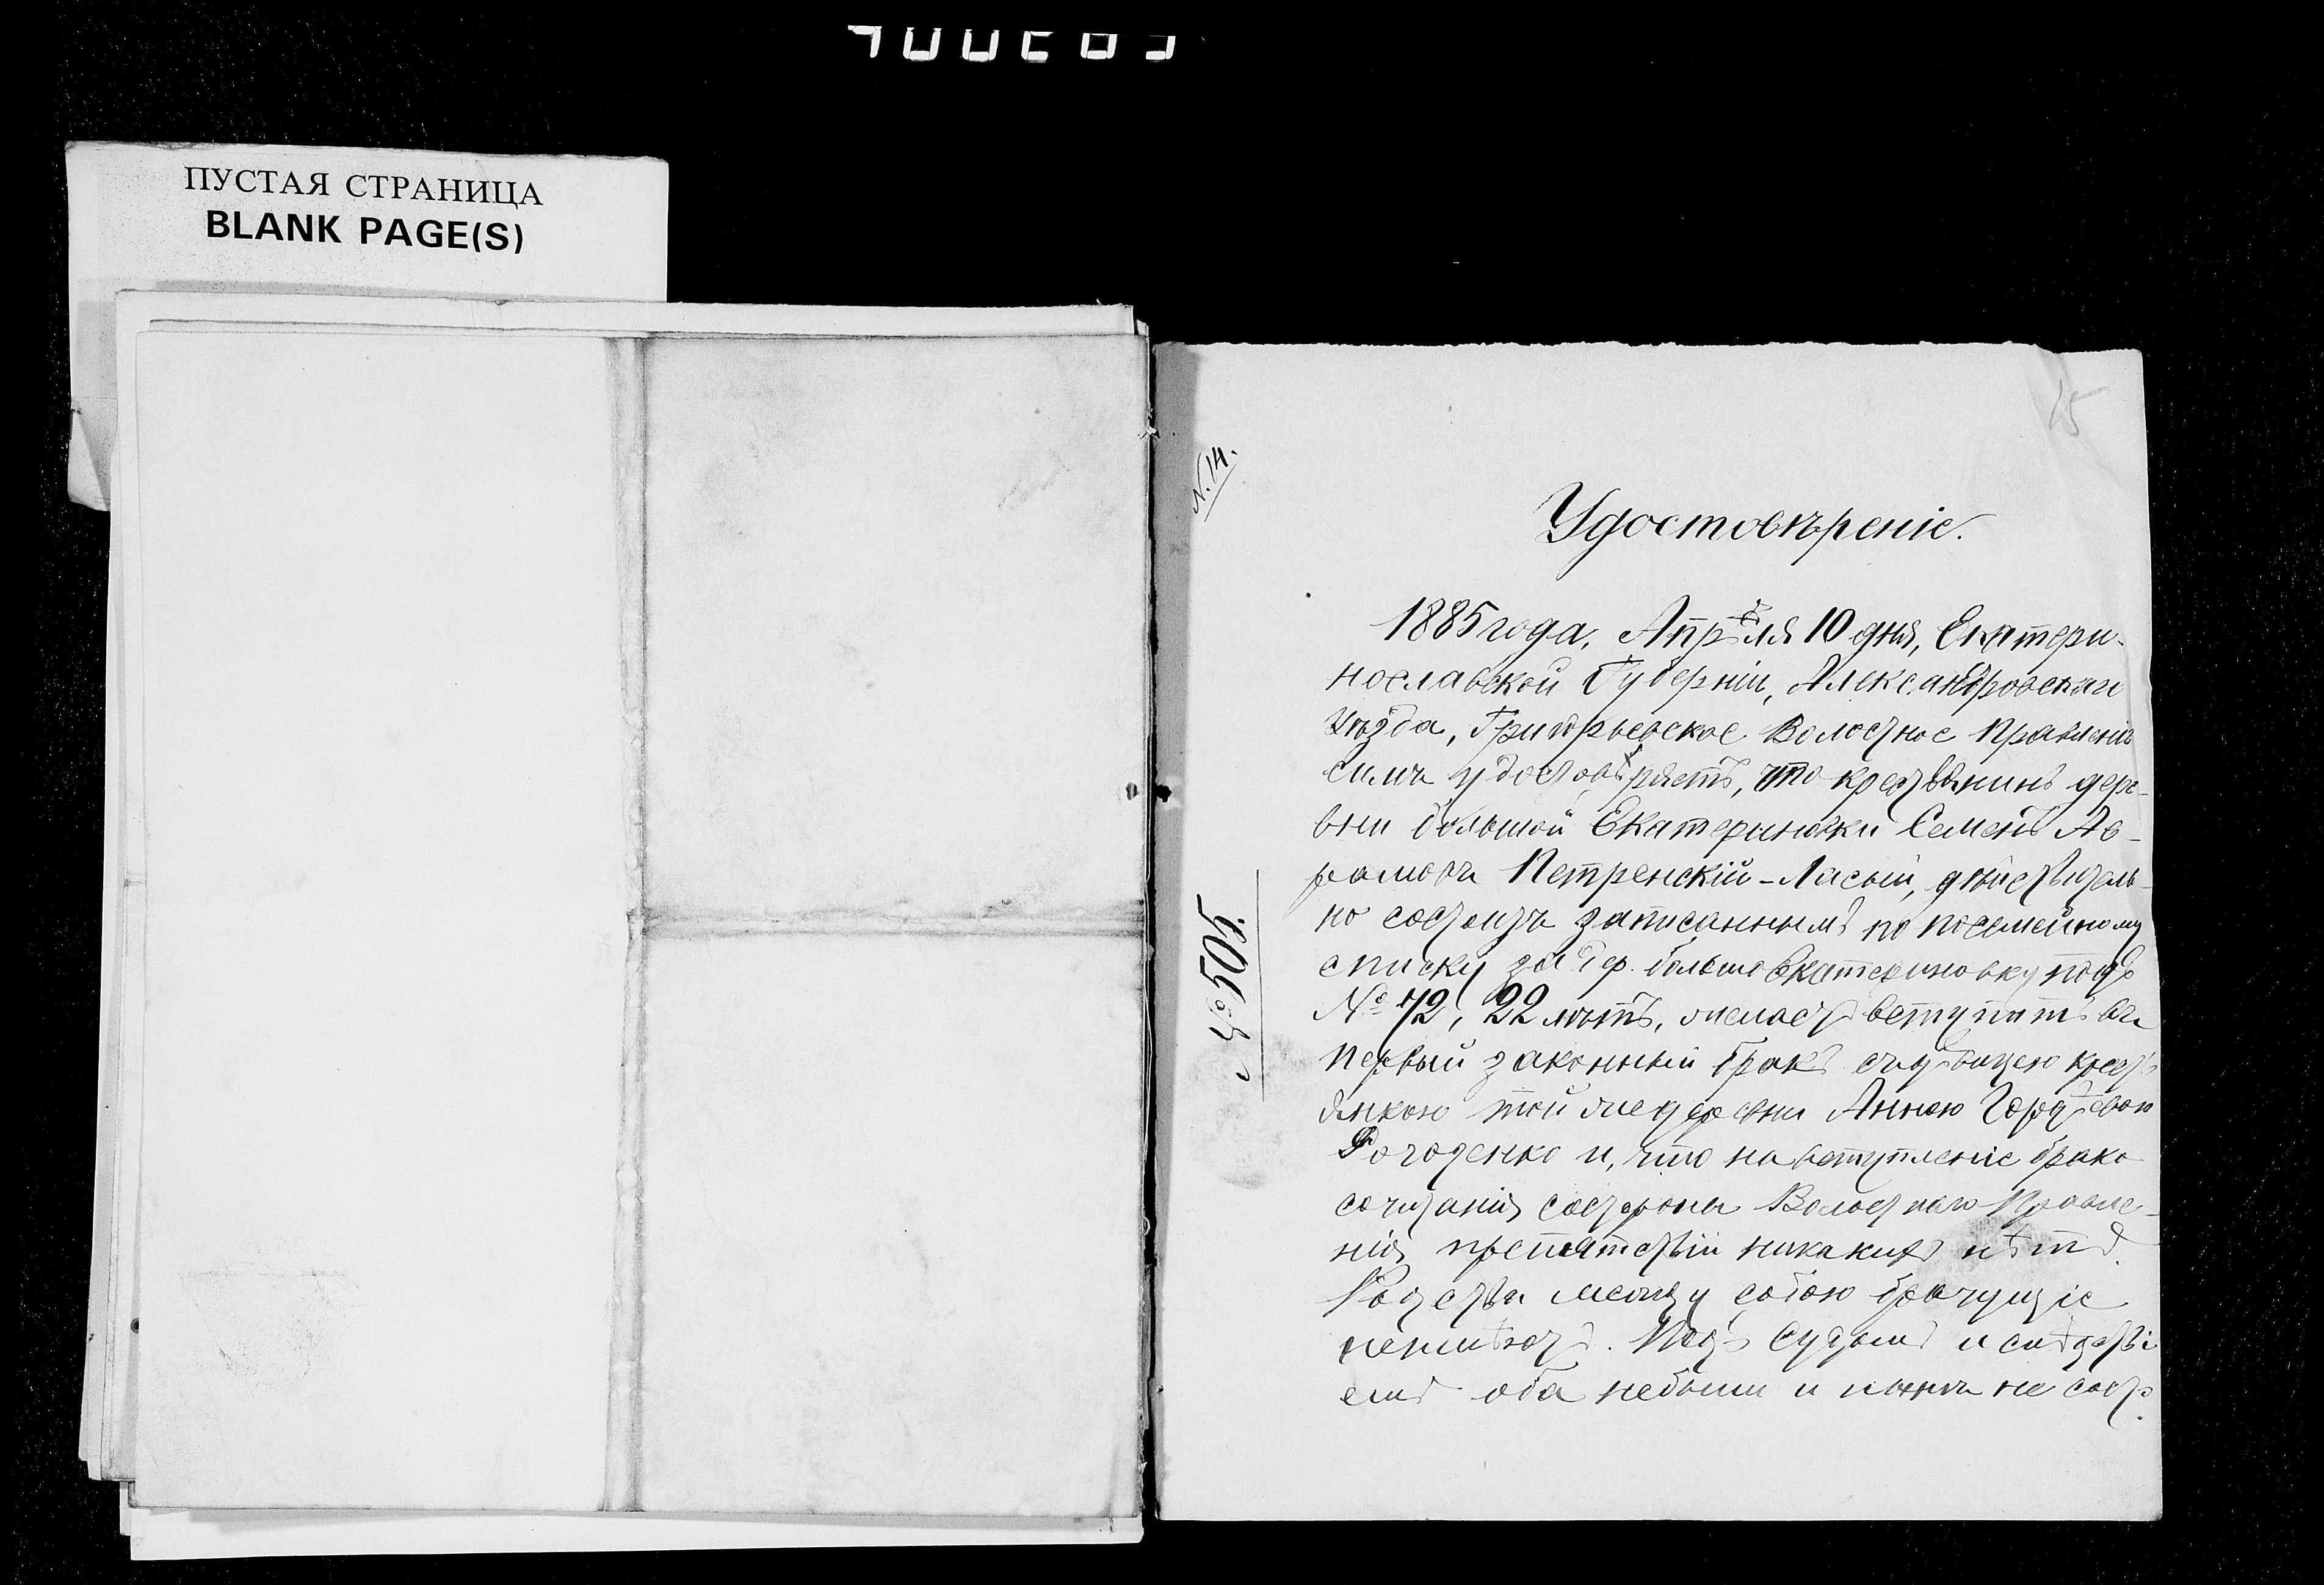 ПУСТАЯ СТРАНИЦА
BLANK PAGE(S)
25
N. 14.
Удостовѣреніе.
1885 года, Апрѣля 10 дня, Екатери-
нославской Губерніи, Александровскаго
уѣзда, Григорьевское Волостное Правленіе
симъ удостовѣряетъ, что крестьянинъ дере-
вни большой Екатериновки Семенъ Ав-
рамовъ Петренскій-Лисый, дѣйствитель-
но состоитъ записаннымъ по посемейному
списку за дер. больше Екатериновку подъ
№ 72, 22 лѣтъ, желаетъ вступить въ
первый законный бракъ съ дѣвицею крест
янкою той же деревни Анною Гордѣевою
Рогозенко и, что на вступленіе брако
сочитанія состороны Волостнаго Правле-
нія препятствій никакихъ нѣтъ.
Родства между собою брачущіе
неимѣютъ. Подъ судомъ и слѣдстві
емъ оба небыли и нынѣ не сост
№ 505.